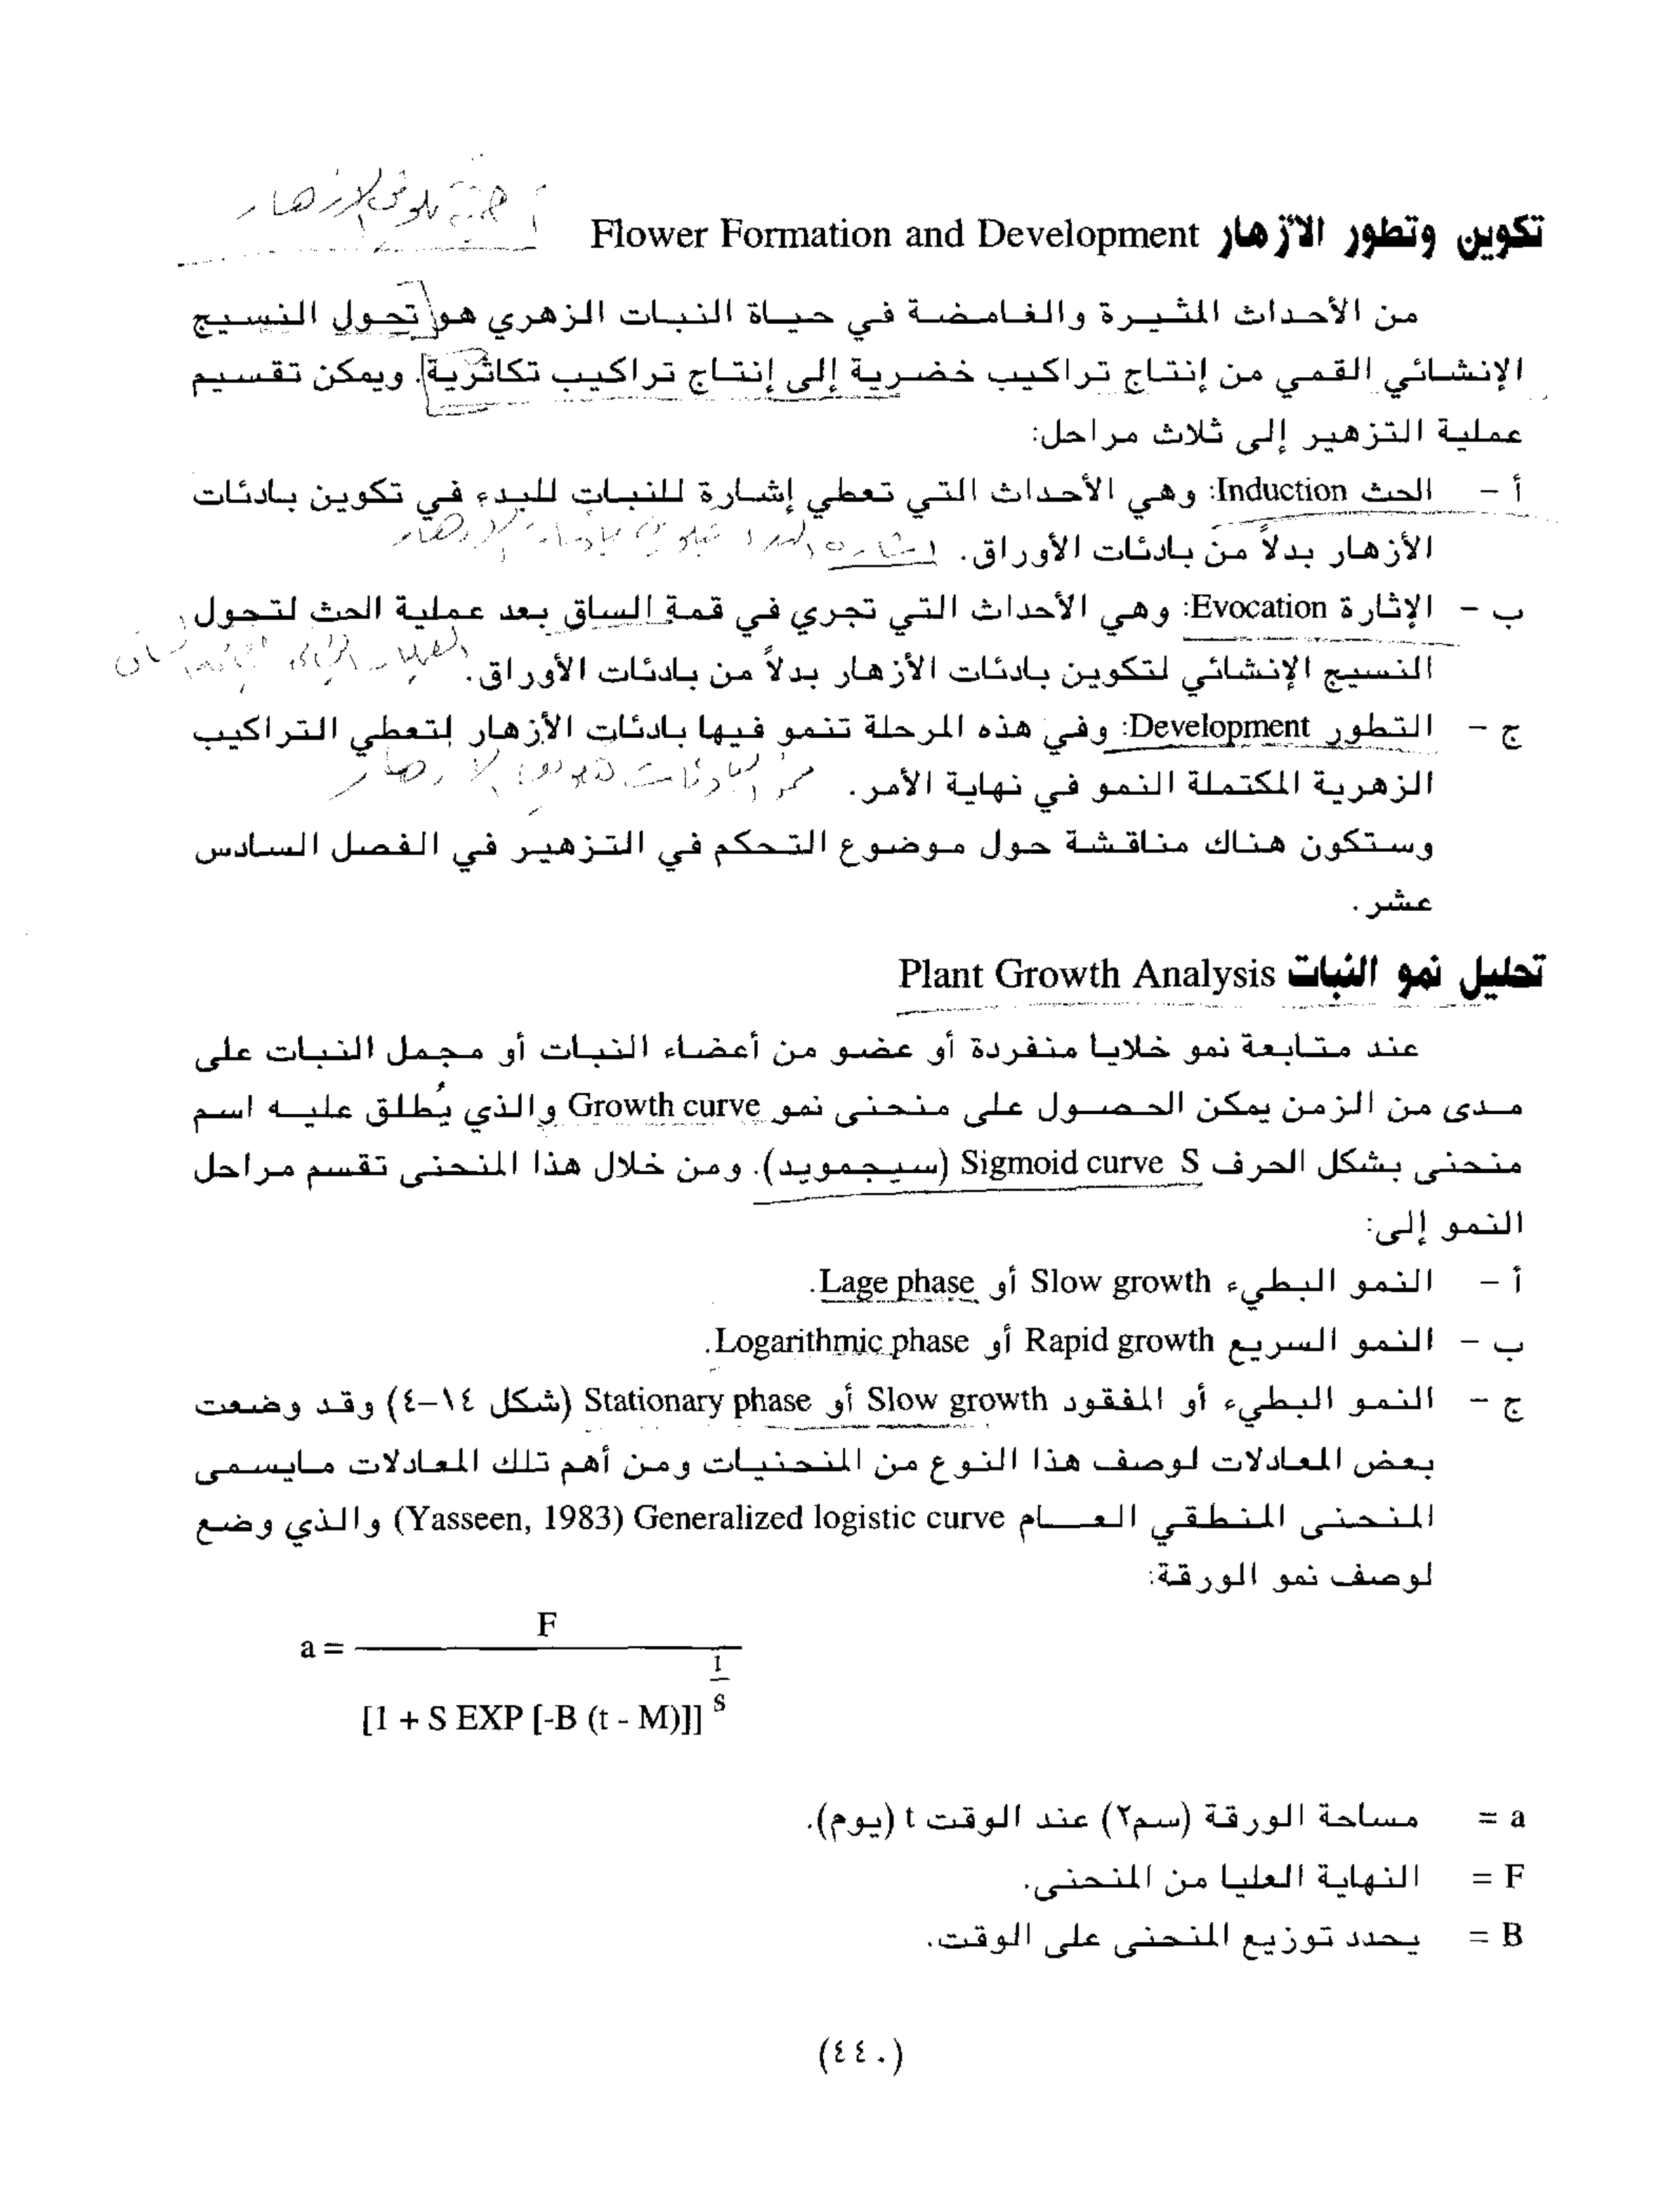 تكوين وتطور الأزهار Flower Formation and Development
من الأحداث المثيرة والغامضة في حياة النبات الزهري هو تحول النسيج
الإنشائي القمي من إنتاج تراكيب خضرية إلى إنتاج تراكيب تكاثرية. ويمكن تقسيم
عملية التزهير إلى ثلاث مراحل:
أ - الحث Induction: وهي الأحداث التي تعطي إشارة للنبات للبدء في تكوين بادئات
الأزهار بدلاً من بادئات الأوراق.
ب - الإثارة Evocation: وهي الأحداث التي تجري في قمة الساق بعد عملية الحث لتحول
النسيج الإنشائي لتكوين بادئات الأزهار بدلاً من بادئات الأوراق.
ج - التطور Development: وفي هذه المرحلة تنمو فيها بادئات الأزهار لتعطي التراكيب
الزهرية المكتملة النمو في نهاية الأمر.
وستكون هناك مناقشة حول موضوع التحكم في التزهير في الفصل السادس
عشر.
تحليل نمو النبات Plant Growth Analysis
عند متابعة نمو خلايا منفردة أو عضو من أعضاء النبات أو مجمل النبات على
مدى من الزمن يمكن الحصول على منحنى نمو Growth curve والذي يُطلق عليه اسم
منحنى بشكل الحرف S Sigmoid curve (سيجمويد). ومن خلال هذا المنحنى تقسم مراحل
النمو إلى:
أ - النمو البطيء Slow growth أو Lage phase.
ب - النمو السريع Rapid growth أو Logarithmic phase.
ج - النمو البطيء أو المفقود Slow growth أو Stationary phase (شكل ١٤-٤) وقد وضعت
بعض المعادلات لوصف هذا النوع من المنحنيات ومن أهم تلك المعادلات مايسمى
المنحنى المنطقي العام Generalized logistic curve (Yasseen, 1983) والذي وضع
لوصف نمو الورقة:
F
a =
1
[1 + S EXP [-B (t - M)]] S
a = مساحة الورقة (سم٢) عند الوقت t (يوم).
F = النهاية العليا من المنحنى.
B = يحدد توزيع المنحنى على الوقت.
(٤٤٠)